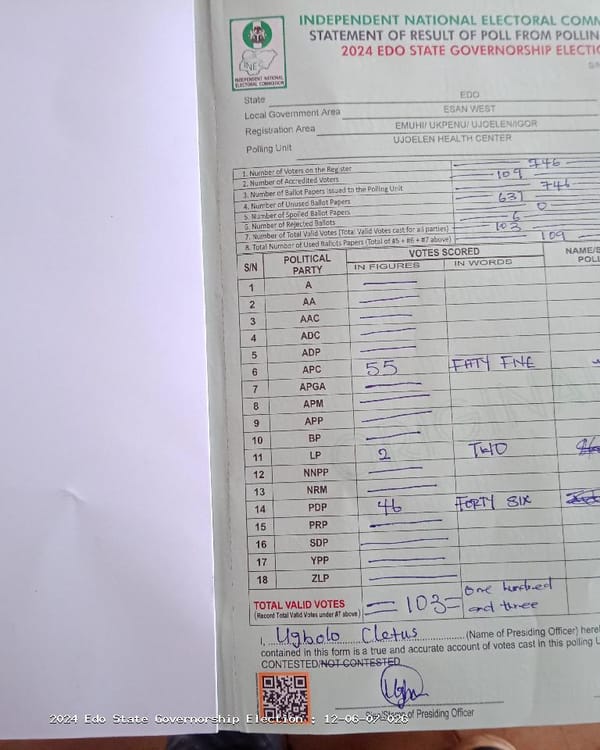 INDEPENDENT NATIONAL ELECTORAL COMM
STATEMENT OF RESULT OF POLL FROM POLLIN
2024 EDO STATE GOVERNORSHIP ELECTIO
INEC
INDEPENDENT NATIONAL
ELECTORAL COMMISSION
State EDO
Local Government Area ESAN WEST
Registration Area EMUHI/ UKPENU/ UJOELEN/IGOR
Polling Unit UJOELEN HEALTH CENTER
1. Number of Voters on the Register 746
2. Number of Accredited Voters 109
3. Number of Ballot Papers Issued to the Polling Unit 746
4. Number of Unused Ballot Papers 637
5. Number of Spoiled Ballot Papers 0
6. Number of Rejected Ballots 6
7. Number of Total Valid Votes (Total Valid Votes cast for all parties) 103
8. Total Number of Used Ballots Papers (Total of #5 + #6 + #7 above) 109
S/N POLITICAL PARTY VOTES SCORED NAME/
IN FIGURES IN WORDS POLL
1 A
2 AA
3 AAC
4 ADC
5 ADP
6 APC 55 FIFTY FIVE
7 APGA
8 APM
9 APP
10 BP
11 LP 2 TWO
12 NNPP
13 NRM
14 PDP 46 FORTY SIX
15 PRP
16 SDP
17 YPP
18 ZLP
TOTAL VALID VOTES = 103 = One hundred
(Record Total Valid Votes under #7 above) and three
I, Ugbolo Cletus (Name of Presiding Officer) here
contained in this form is a true and accurate account of votes cast in this polling
CONTESTED/NOT CONTESTED
Sign/Stamp of Presiding Officer
2024 Edo State Governorship Election : 12-06-07-026